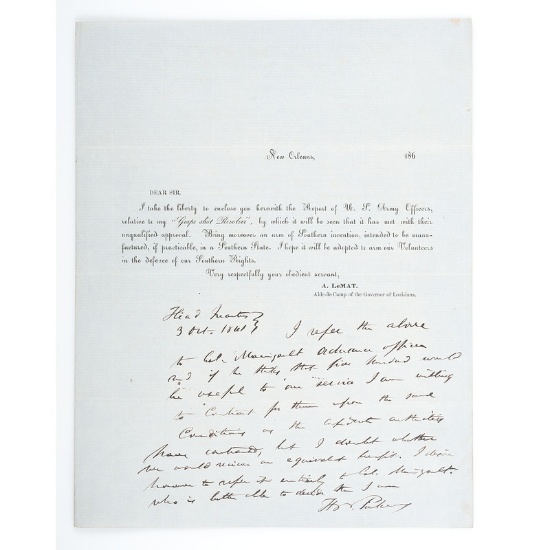 New Orleans, 186
DEAR SIR,
I take the liberty to enclose you herewith the Report of U. S. Army Officers,
relative to my "Grape shot Revolver", by which it will be seen that it has met with their
unqualified approval. Being moreover an arm of Southern invention, intended to be manu-
factured, if practicable, in a Southern State. I hope it will be adopted to arm our Volunteers
in the defence of our Southern Rights.
Very respectfully your obedient servant,
A. LeMAT.
Aid-de-Camp of the Governor of Louisiana.
Head Quarters
3 Oct. 1861 I refer the above
to Col. Manigault Ordnance officer
and if he thinks that five hundred would
be useful to our service I am willing
to Contract for them upon the same
Conditions as the authorities
have contracted, but I doubt whether
we would receive an equivalent benefit. I desire
however to refer it entirely to Col. Manigault
who is better able to decide than I am